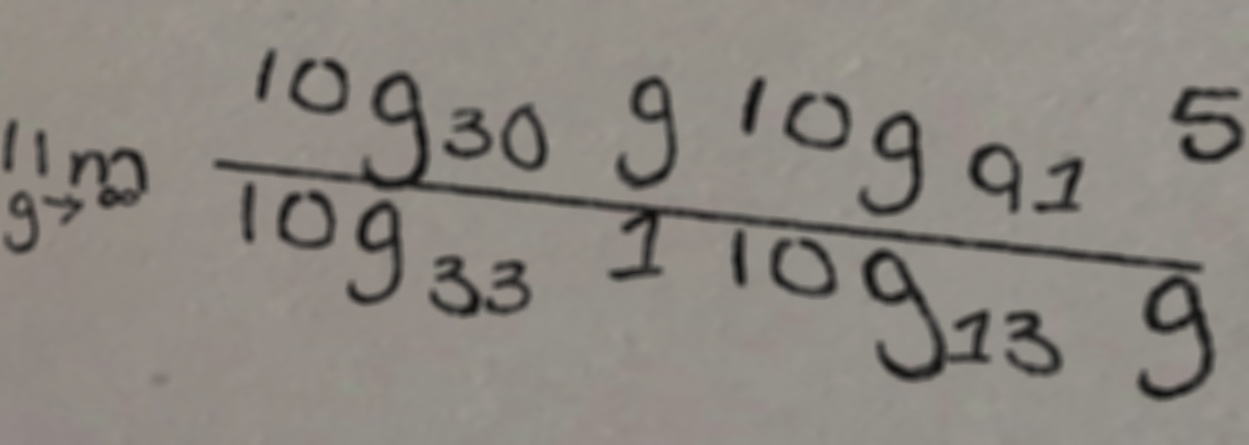 lim g→∞ \frac{log_{30} g log_{91} 5}{log_{33} 1 log_{13} g}